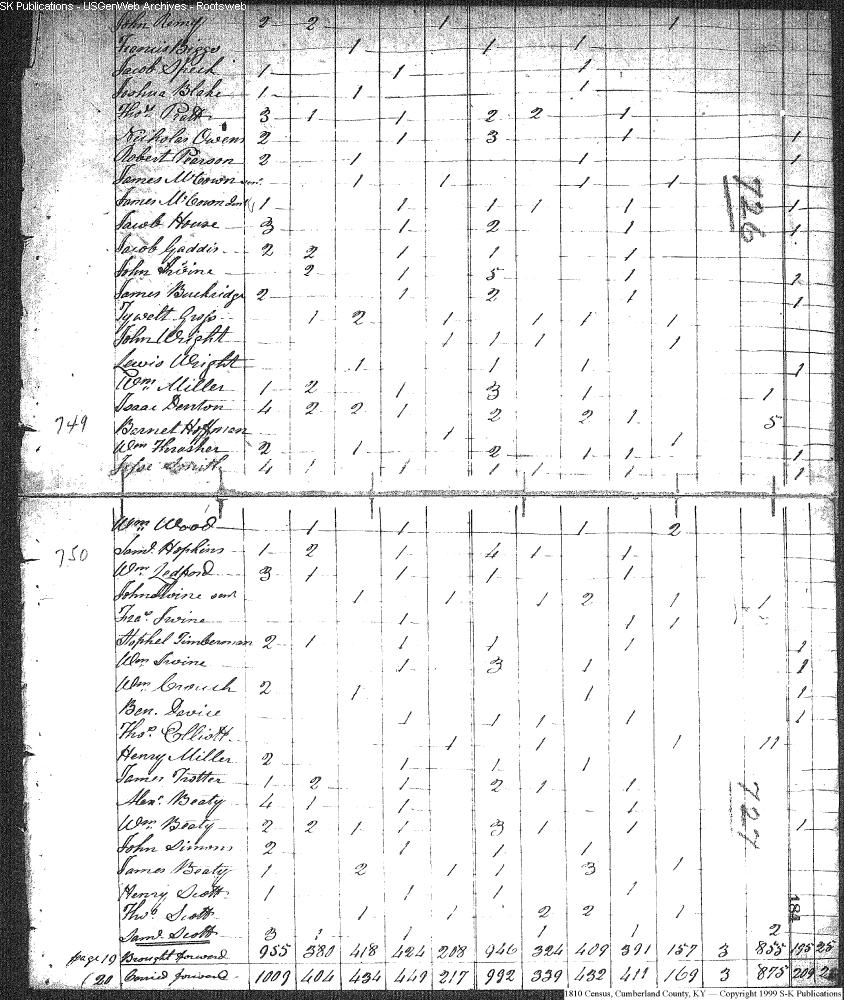 SK Publications - USGenWeb Archives - Rootsweb
John Remy 2 2 1 1
Francis Biggs 1 1 1
Jacob Speck 1 1 1
Joshua Blake 1 1 1
Thos. Pratt 3 1 1 2 2 1
Nicholas Owens 2 1 3 1 1
Robert Pearson 2 1 1 1
James McCown senr. 1 1 1 1
James McCown Junr. 1 1 1 1 1 1
726
Jacob House 3 1 2 1 1
Jacob Gaddis 2 2 1 1 1
John Irvine 2 1 5 1 1
James Buckridge 2 1 2 1 1
Tywelt Gross 1 2 1 1 1 1
John Wright 1 1 1 1
Lewis Wright 1 1 1 1
Wm. Miller 1 2 1 3 1 1
749 Isaac Denton 4 2 2 1 2 2 1 5
Barnet Hoffman 1 1
Wm Thrasher 2 1 2 1 1 1
Jesse South 4 1 1 1 1 1 1
Wm. Wood 1 1 1 2
750 Saml. Hopkins 1 2 1 4 1 1
Wm. Ledford 3 1 1 1 1
John Irvine senr 1 1 1 2 1 1
Fras. Irvine 1 1 1
Hophel Timberman 2 1 1 1 1 1
Wm Irvine 1 3 1 1
Wm. Crouch 2 1 1 1
Ben. Davice 1 1 1 1 1
Thos. Elliott 1 1 1 11
Henry Miller 2 1 1 1
James Trotter 1 2 1 2 1 1
727
Alexr. Beaty 4 1 1 1
Wm. Beaty 2 2 1 1 3 1 1 1
John Simons 2 1 1 1
James Beaty 1 2 1 1 3 1
Henry Scott 1 1 1 1
184
Thos Scott 1 1 2 2 1
Saml. Scott 3 1 1 1 1 2
page 19 Brought forward 955 380 418 424 208 946 324 409 391 157 3 855 195 25
(20 Carried forward 1009 404 434 449 217 992 339 432 411 169 3 875 209 25
1810 Census, Cumberland County, KY — Copyright 1999 S-K Publications